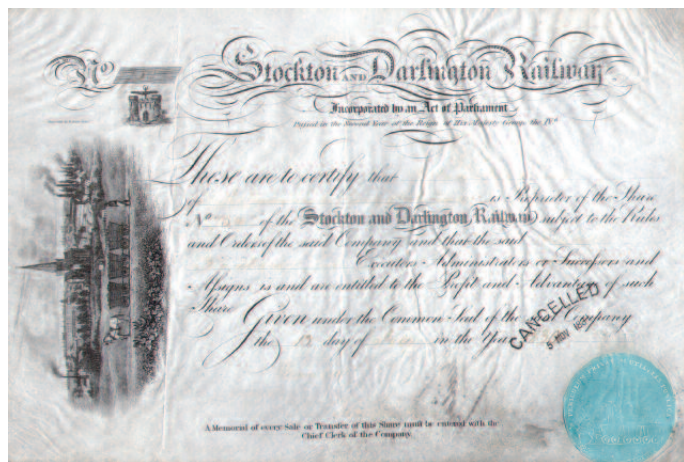 No
Stockton AND Darlington Railway
Incorporated by an Act of Parliament
Passed in the Second Year of the Reign of His Majesty George the IVth
These are to certify that
of is Proprietor of the Share
No of the Stockton and Darlington Railway subject to the Rules
and Orders of the said Company and that the said
Executors Administrators or Successors and
Assigns is and are entitled to the Profit and Advantage of such
Share Given under the Common Seal of the said Company
the 12 day of in the Year
CANCELLED
5 NOV
A Memorial of every Sale or Transfer of this Share must be entered with the
Chief Clerk of the Company.